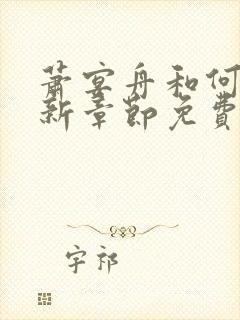 萧宴舟和何
新章節免費
宇祁